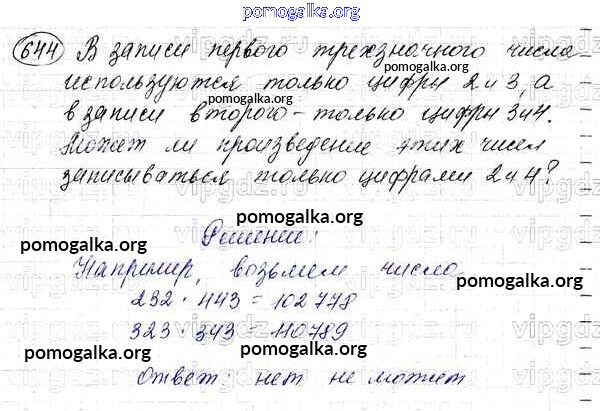 pomogalka.org
644 В записи первого трехзначного числа
используются только цифры 2 и 3, а
pomogalka.org
в записи второго - только цифры 3 и 4.
Может ли произведение этих чисел
записываться только цифрами 2 и 4?
pomogalka.org
Решение:
pomogalka.org
Например, возьмем числа
pomogalka.org
232 · 443 = 102778
323 · 343 = 110789
pomogalka.org
pomogalka.org
Ответ: нет не может